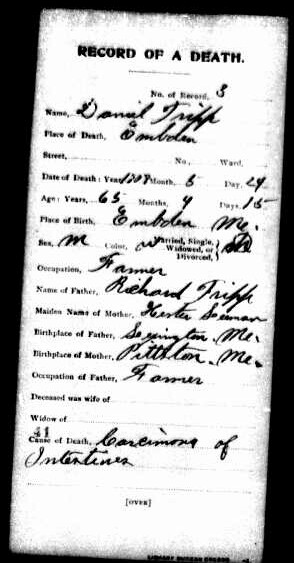 RECORD OF A DEATH.
No. of Record, 3
Name, Daniel Tripp
Place of Death, Embden
Street, No., Ward,
Date of Death: Year 1908 Month, 5 Day, 24
Age: Years, 65 Months, 4 Days, 15
Place of Birth, Embden Me.
Sex, M Color, W Married, Single, Widowed, or Divorced,
Occupation, Farmer
Name of Father, Richard Tripp
Maiden Name of Mother,
Birthplace of Father, Lexington, Me.
Birthplace of Mother, Pittston, Me.
Occupation of Father, Farmer
Deceased was wife of
Widow of
41
Cause of Death, Carcimona of
Intentines
[OVER]
LIBRARY BUREAU